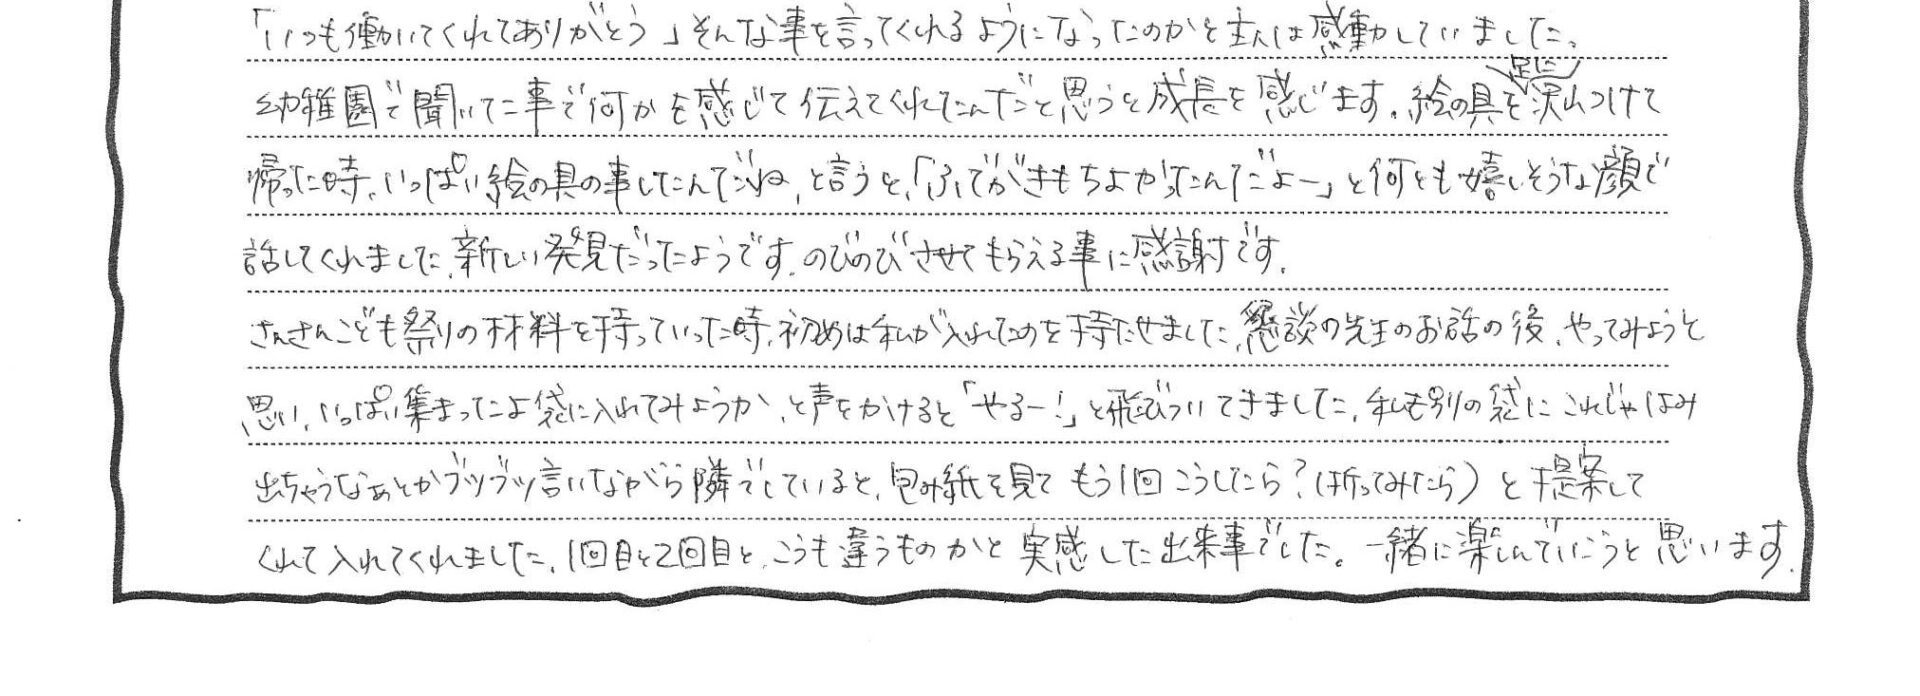 「いつも働いてくれてありがとう」そんな事を言ってくれるようになったのかと主人は感動していました。
幼稚園で聞いた事で何かを感じて伝えてくれたんだと思うと成長を感じます。絵の具を足に沢山つけて
帰った時、いっぱい絵の具の事したんだね、と言うと、「ふでがきもちよかったんだよー」と何とも嬉しそうな顔で
話してくれました。新しい発見だったようです。のびのびさせてもらえる事に感謝です。
さんさんこども祭りの材料を持っていった時、初めは私が入れたのを持たせました。懇談の先生のお話の後、やってみようと
思い、いっぱい集まったよ袋に入れてみようか、と声をかけると「やるー!」と飛びついてきました。私も別の袋にこれじゃはみ
出ちゃうなぁとかブツブツ言いながら隣でしていると、包み紙を見てもう1回こうしたら?(折ってみたら)と提案して
くれて入れてくれました。1回目と2回目と、こうも違うものかと実感した出来事でした。一緒に楽しんでいこうと思います。